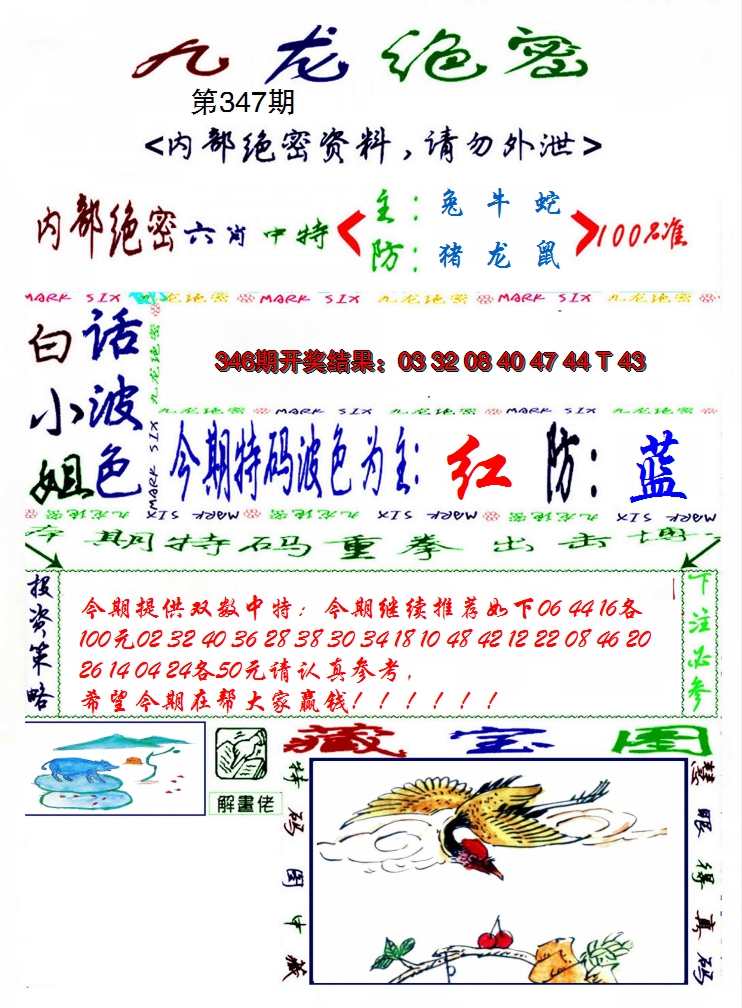 九龙绝密
第347期
<内部绝密资料,请勿外泄>
内部绝密六肖中特
主:兔牛蛇
防:猪龙鼠
100%准
MARK SIX 九龙绝密 MARK SIX 九龙绝密 MARK SIX 九龙绝密
白小姐
话波色
九龙绝密 MARK SIX
346期开奖结果:03 32 08 40 47 44 T 43
九龙绝密 MARK SIX 九龙绝密 MARK SIX 九龙绝密
今期特码波色为主:红 防:蓝
MARK SIX 九龙绝密 MARK SIX 九龙绝密 MARK SIX
本期特码重拳出击博
投资策略
今期提供双数中特:今期继续推荐如下06 44 16各
100元02 32 40 36 28 38 30 34 18 10 48 42 12 22 08 46 20
26 14 04 24各50元请认真参考,
希望今期在帮大家赢钱!!!!!!
下注必参
解畫佬
藏宝图
特码图中藏
慧眼得真码